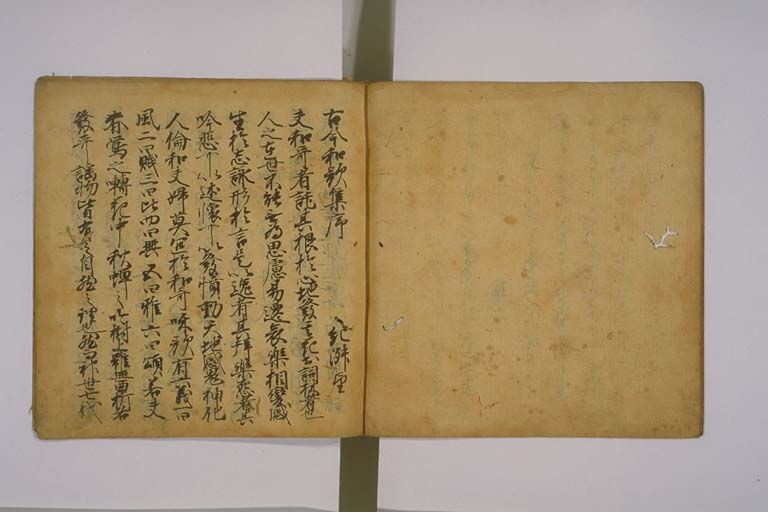 古今和歌集序
紀淑望
夫和哥者託其根於心地發其花於詞林者也
人之在世不能無為思慮易遷哀樂相變感
生於志詠形於言是以逸者其辞樂怨者其
吟悲可以述懐可以發憤動天地感鬼神化
人倫和夫婦莫宜於和哥和歌有六義一曰
風二曰賦三曰比四曰興五曰雅六曰頌若夫
春鶯之囀花中秋蝉之吟樹上雖無曲折各
發哥謡物皆有之自然之理也然而神世七代